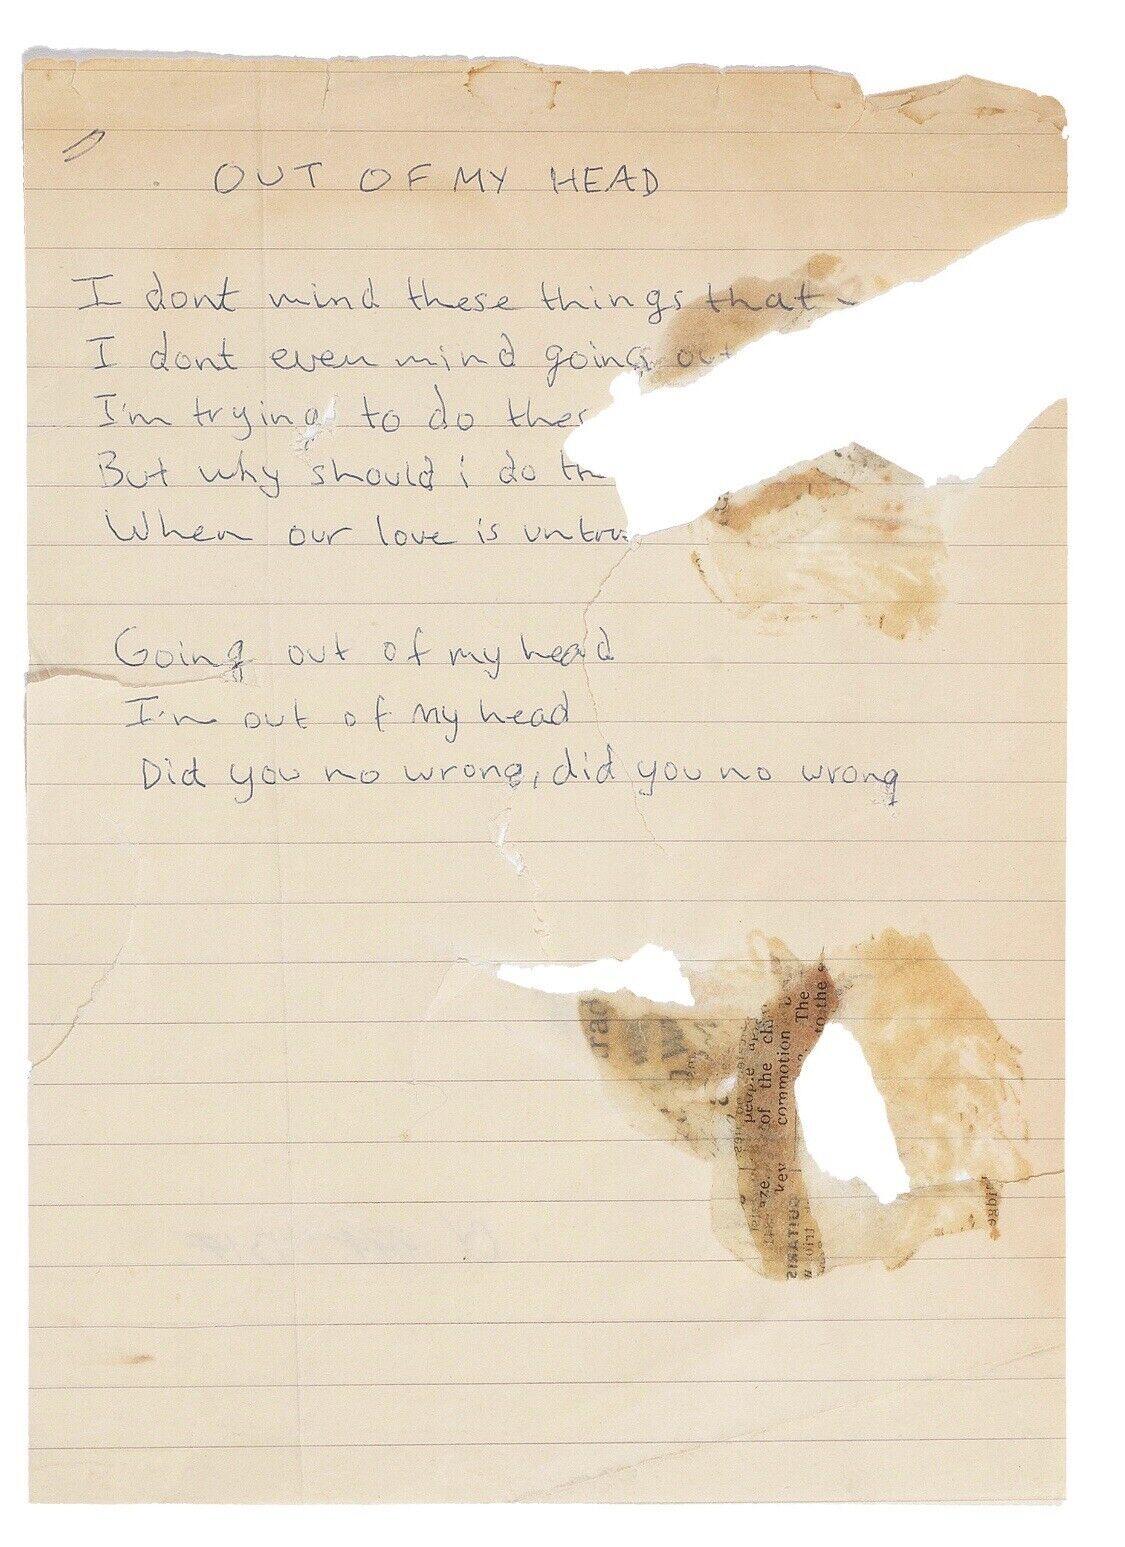 OUT OF MY HEAD
I dont mind these things that
I dont even mind going out
I'm trying to do thes
But why should i do th
When our love is untru
Going out of my head
I'm out of my head
Did you no wrong, did you no wrong
trad
people
of the
commotion The
to the
key
GUITARIS
trio
idge